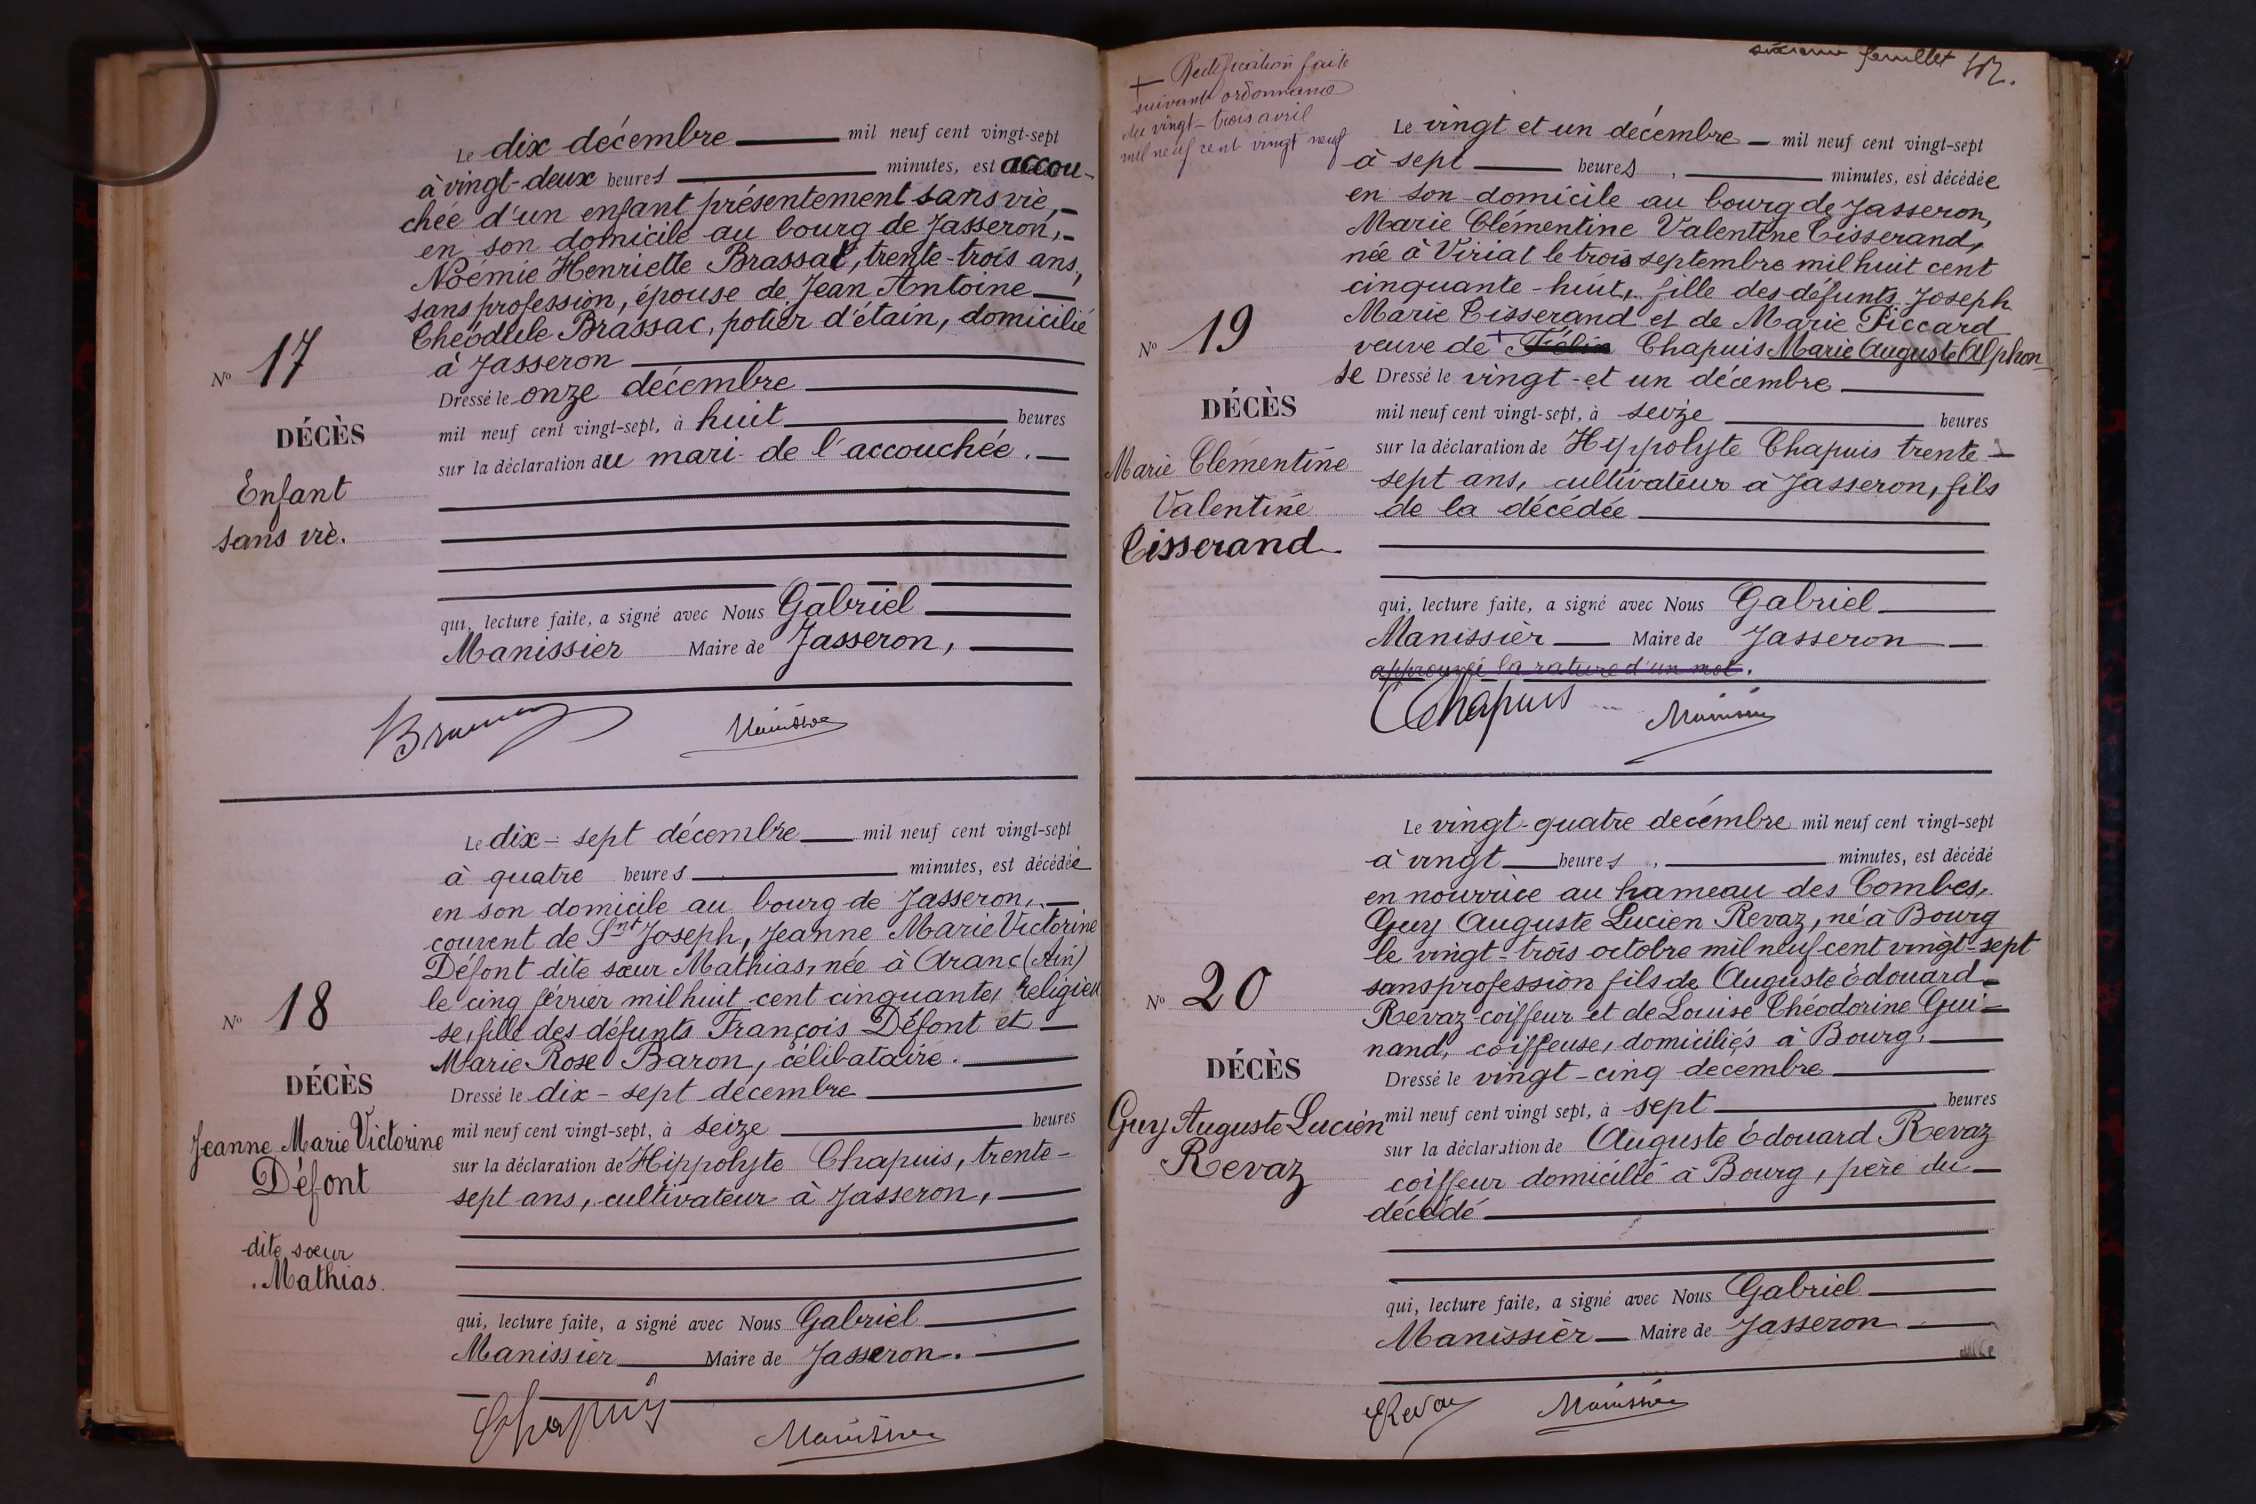 Le dix décembre mil neuf cent vingt-sept
à vingt-deux heures minutes, est accou-
chée d'un enfant présentement sans vie,
en son domicile au bourg de Jasseron,
Noémie Henriette Brassac, trente-trois ans,
sans profession, épouse de Jean Antoine
Théodule Brassac, potier d'étain, domicilié
à Jasseron
Dressé le onze décembre
mil neuf cent vingt-sept, à huit heures
sur la déclaration du mari de l'accouchée.
qui, lecture faite, a signé avec Nous Gabriel
Manissier Maire de Jasseron,
Manissier
No 17
DÉCÈS
Enfant
sans vie.
Le dix-sept décembre mil neuf cent vingt-sept
à quatre heures minutes, est décédée
en son domicile au bourg de Jasseron,
couvent de Snt Joseph, Jeanne Marie Victorine
Défont dite sœur Mathias, née à Aranc (Ain)
le cinq février mil huit cent cinquante, religieu
se, fille des défunts François Défont et
Marie Rose Baron, célibataire.
Dressé le dix-sept décembre
mil neuf cent vingt-sept, à seize heures
sur la déclaration de Hippolyte Chapuis, trente-
sept ans, cultivateur à Jasseron,
qui, lecture faite, a signé avec Nous Gabriel
Manissier Maire de Jasseron.
Chapuis Manissier
No 18
DÉCÈS
Jeanne Marie Victorine
Défont
dite sœur
Mathias.
feuillet
+ Rectification faite
suivant ordonnance
du vingt-trois avril
mil neuf cent vingt neuf
Le vingt et un décembre mil neuf cent vingt-sept
à sept heures, minutes, est décédée
en son domicile au bourg de Jasseron,
Marie Clémentine Valentine Tisserand,
née à Viriat le trois septembre mil huit cent
cinquante-huit, fille des défunts Joseph
Marie Tisserand et de Marie Piccard
veuve de + Félix Chapuis Marie Auguste Alphon-
se Dressé le vingt-et un décembre
mil neuf cent vingt-sept, à seize heures
sur la déclaration de Hyppolyte Chapuis trente-
sept ans, cultivateur à Jasseron, fils
de la décédée
qui, lecture faite, a signé avec Nous Gabriel
Manissier Maire de Jasseron
approuvé la rature d'un mot.
Chapuis Manissier
No 19
DÉCÈS
Marie Clémentine
Valentine
Tisserand
Le vingt-quatre décembre mil neuf cent vingt-sept
à vingt heures, minutes, est décédé
en nourrice au hameau des Combes,
Guy Auguste Lucien Revaz, né à Bourg
le vingt-trois octobre mil neuf cent vingt-sept
sans profession fils de Auguste Edouard
Revaz coiffeur et de Louise Théodorine Gui-
nand, coiffeuse, domiciliés à Bourg,
Dressé le vingt-cinq decembre
mil neuf cent vingt sept, à sept heures
sur la déclaration de Auguste Edouard Revaz
coiffeur domicilié à Bourg, père du
décédé
qui, lecture faite, a signé avec Nous Gabriel
Manissier Maire de Jasseron
Revaz Manissier
No 20
DÉCÈS
Guy Auguste Lucien
Revaz